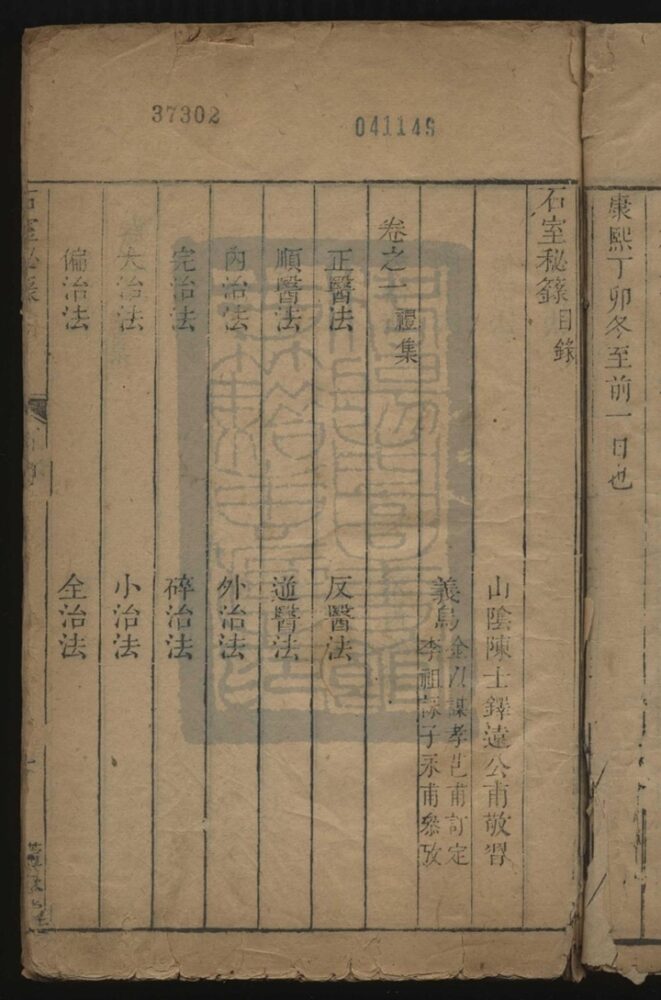 37302
041149
康熙丁卯冬至前一日也
石室秘籙目錄
山陰陳士鐸遠公甫敬習
義烏
金以謀孝芑甫訂定
李祖詠子永甫參攷
卷之一 禮集
正醫法 反醫法
順醫法 逆醫法
內治法 外治法
完治法 碎治法
大治法 小治法
偏治法 全治法
石室秘籙